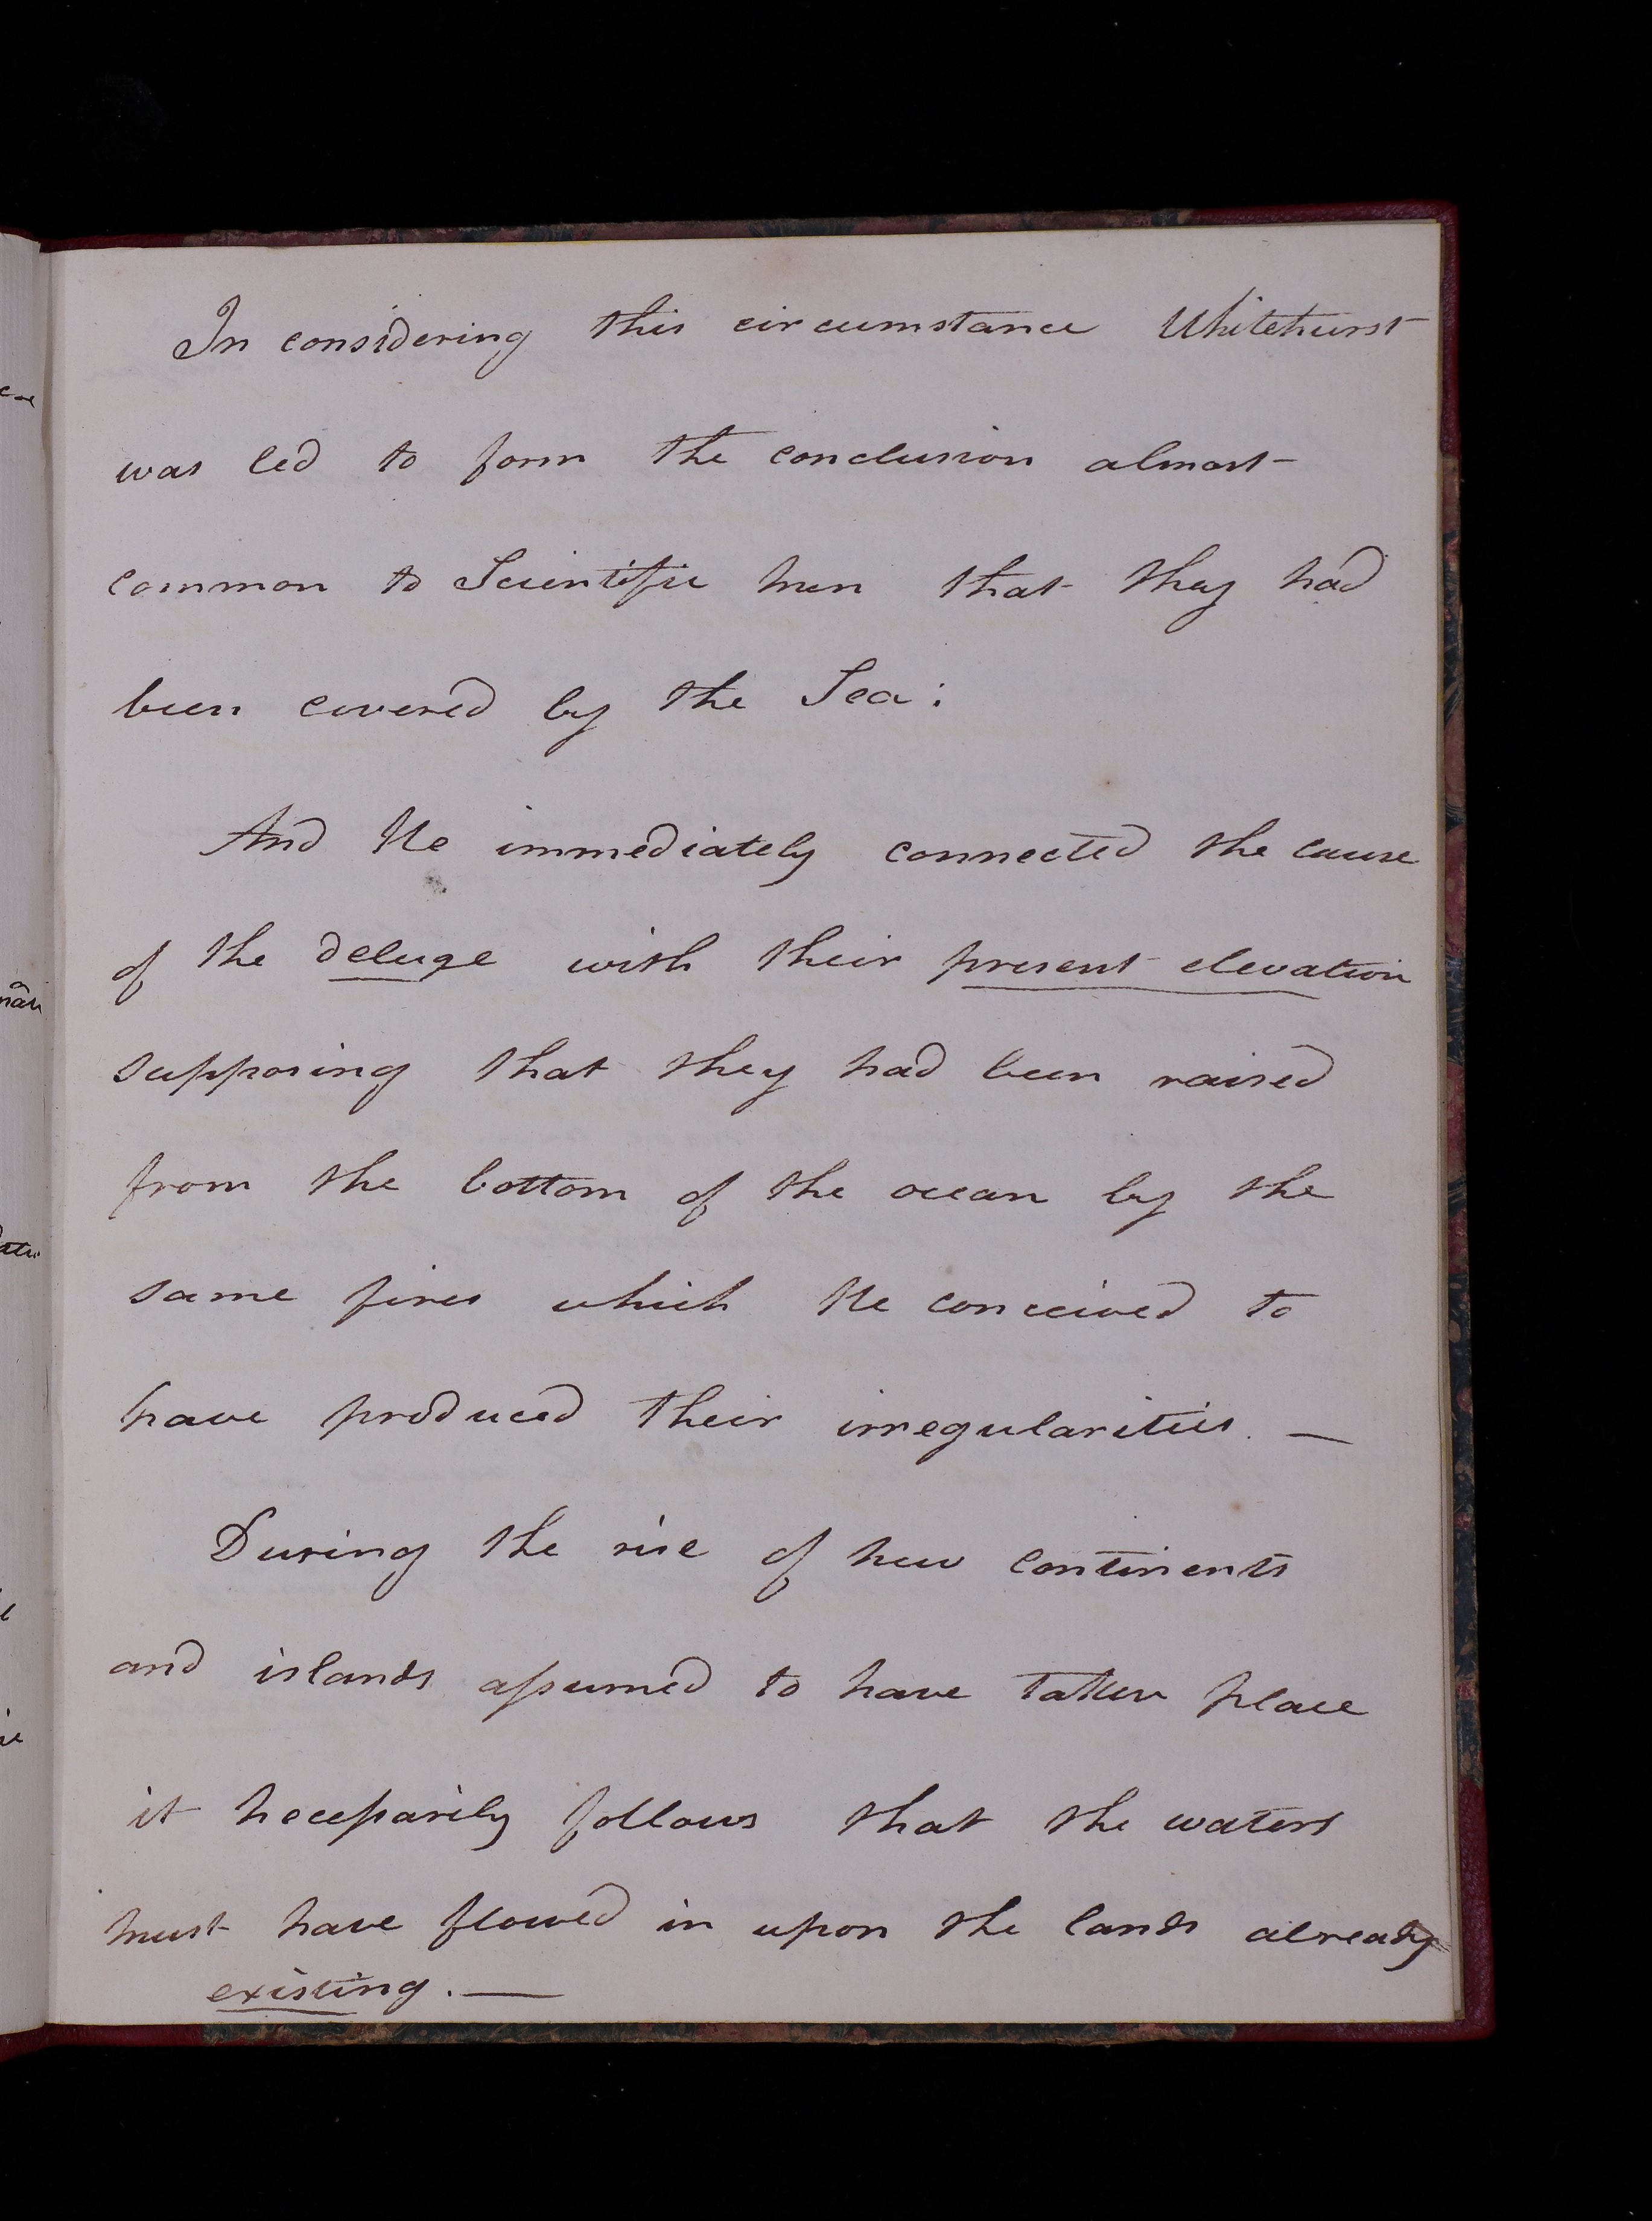 In considering this circumstance Whitehurst
was led to form the conclusion almost
common to Scientific men that they had
been covered by the Sea:
And He immediately connected the cause
of the deluge with their present elevation
supposing that they had been raised
from the bottom of the ocean by the
same fires which He conceived to
have produced their irregularities. —
During the rise of new continents
and islands assumed to have taken place
it necessarily follows that the waters
must have flowed in upon the lands already
existing. —